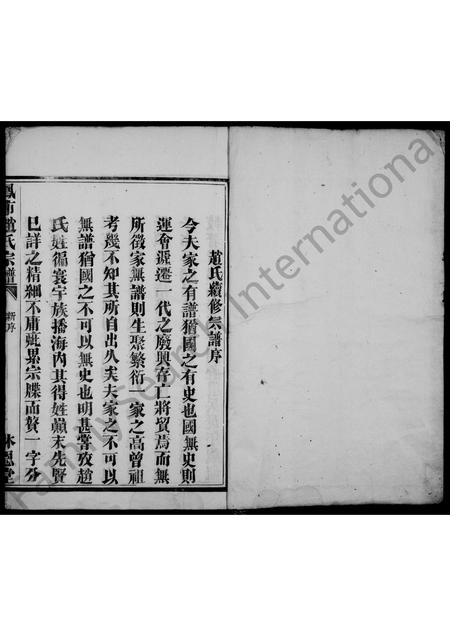 趙氏續修宗譜序
今夫家之有譜猶國之有史也國無史則
運會遞遷一代之廢興存亡將貿焉而無
所徵家無譜則生聚繁衍一家之高曾祖
考幾不知其所自出久矣夫家之不可以
無譜猶國之不可以無史也明甚嘗攷趙
氏姓徧寰宇族播海內其得姓巔末先賢
已詳之精細不庸疵累宗牒而贅一字分
趙氏宗譜
新序
FamilySearch International